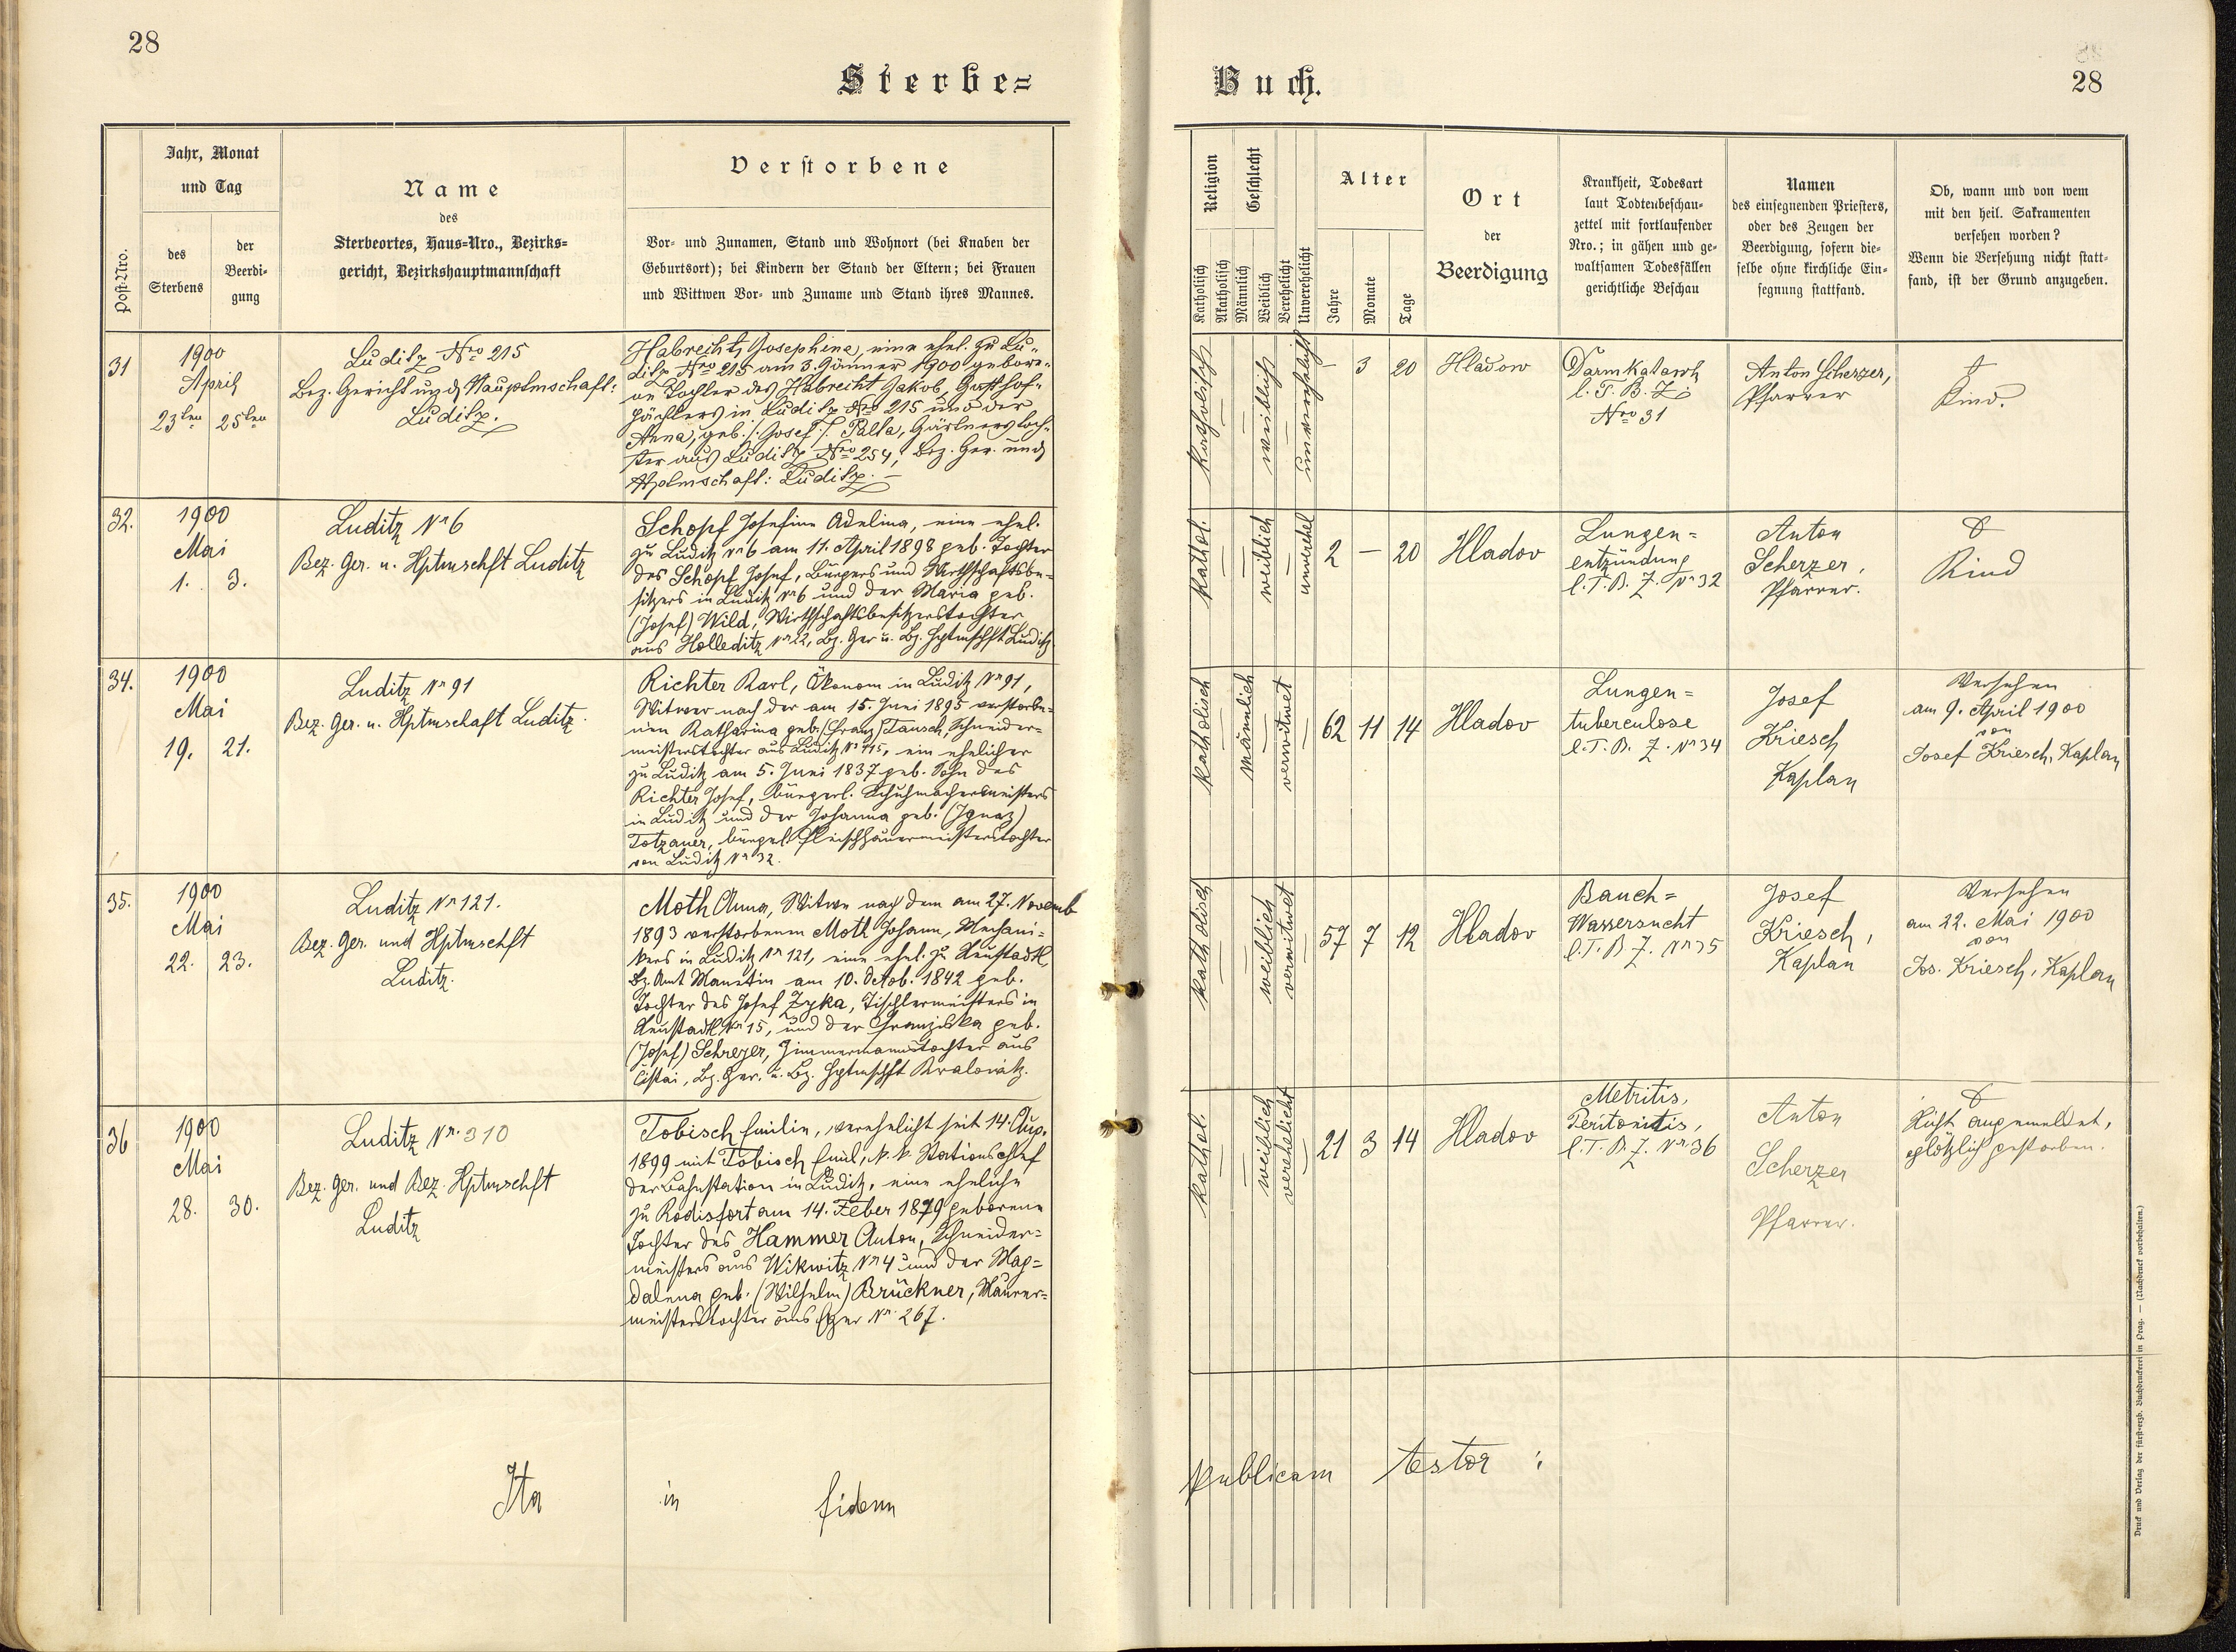 28
Sterbe=
Jahr, Monat
und Tag
Post-Nro.
des
Sterbens
der
Beerdi-
gung
Name
des
Sterbeortes, Haus-Nro., Bezirks-
gericht, Bezirkshauptmannschaft
Verstorbene
Vor- und Zunamen, Stand und Wohnort (bei Knaben der
Geburtsort); bei Kindern der Stand der Eltern; bei Frauen
und Wittwen Vor- und Zuname und Stand ihres Mannes.
31
1900
April
23ten 25ten
Luditz Nro 215
Bez. Gericht und Hauptmschaft:
Luditz.
Habrecht, Josephine, eine ehel. zu Lu-
ditz Nro 215 am 3. Jänner 1900 gebore-
ne Tochter des Habrecht Jakob, Gasthof-
pächters in Luditz Nro 215 und der
Anna, geb. /: Josef :/ Palta, Gärtnerstoch-
ter aus Luditz Nro 254, Bez. Ger. und
Hptmschaft: Luditz. –
32.
1900
Mai
1. 3.
Luditz Nr 6
Bez. Ger. u. Hptmschft Luditz
Schopf Josefine Adelina, eine ehel.
zu Luditz Nr 6 am 11. April 1898 geb. Tochter
des Schopf Josef, Bürgers und Wirthschaftsbe-
sitzers in Luditz Nr 6 und der Maria geb.
(Josef) Wild, Wirthschaftsbesitzerstochter
aus Holleditz Nr 22, Bz. Ger u. Bz. Hptmschft Luditz
34.
1900
Mai
19. 21.
Luditz Nr 91
Bez. Ger. u. Hptmschaft Luditz.
Richter Karl, Ökonom in Luditz Nr 91,
Witwer nach der am 15. Juni 1895 verstorbe-
nen Katharina geb. (Franz) Tausch, Schneider-
meisterstochter aus Luditz Nr 115, ein ehelicher
zu Luditz am 5. Juni 1837 geb. Sohn des
Richter Josef, bürgerl. Schuhmachermeisters
in Luditz und der Johanna geb. (Ignaz)
Totzauer, bürgerl. Fleischhauermeisterstochter
von Luditz Nr 32.
35.
1900
Mai
22. 23.
Luditz Nr 121.
Bez. Ger. und Hptmschft
Luditz.
Moth Anna, Witwe nach dem am 27. Novemb
1893 verstorbenen Moth Johann, Mechani-
kers in Luditz Nr 121, eine ehel. zu Neustadtl,
Bz. Amt Manetin am 10. Octob. 1842 geb.
Tochter des Josef Zyka, Tischlermeisters in
Neustadtl Nr 15, und der Franziska geb.
(Josef) Schrejer, Zimmermannstochter aus
Čistai, Bz. Ger. u. Bz. Hptmschft Kralowitz.
36
1900
Mai
28. 30.
Luditz Nr. 310
Bez. Ger. und Bez. Hptmschft
Luditz
Tobisch Emilie, verehelicht seit 14. Aug.
1899 mit Tobisch Emil, k. k. Stationschef
der Bahnstation in Luditz, eine eheliche
zu Rodisfort am 14. Feber 1879 geborene
Tochter des Hammer Anton, Schneider-
meisters aus Wikwitz Nr 4 und der Mag-
dalena geb. (Wilhelm) Brückner, Maurer-
meisterstochter aus Eger Nr. 267.
Ita in fidem
Buch.
28
Religion
Geschlecht
Katholisch
Akatholisch
Männlich
Weiblich
Verehelicht
Unverehelicht
Alter
Jahre
Monate
Tage
Ort
der
Beerdigung
Krankheit, Todesart
laut Todtenbeschau-
zettel mit fortlaufender
Nro.; in gähen und ge-
waltsamen Todesfällen
gerichtliche Beschau
Namen
des einsegnenden Priesters,
oder des Zeugen der
Beerdigung, sofern die-
selbe ohne kirchliche Ein-
segnung stattfand.
Ob, wann und von wem
mit den heil. Sakramenten
versehen worden?
Wenn die Versehung nicht statt-
fand, ist der Grund anzugeben.
katholisch
weiblich
unverehelicht
– 3 20
Hladow
Darmkatarrh
l. T. B. Z.
Nro 31
Anton Scherzer,
Pfarrer
Kind.
kathol.
weiblich
unverehel
2 – 20
Hladov
Lungen=
entzündung
l. T. B. Z. Nr 32
Anton
Scherzer,
Pfarrer.
Kind
katholisch
männlich
verwitwet
62 11 14
Hladov
Lungen=
tuberculose
l. T. B. Z. Nr 34
Josef
Kriesch
Kaplan
Versehen
am 9. April 1900
von
Josef Kriesch, Kaplan
katholisch
weiblich
verwitwet
57 7 12
Hladov
Bauch=
Wassersucht
l. T. B Z. Nr 35
Josef
Kriesch,
Kaplan
Versehen
am 22. Mai 1900
von
Jos. Kriesch, Kaplan
kathol.
weiblich
verehelicht
21 3 14
Hladov
Metritis,
Peritonitis,
l. T. B. Z. Nr 36
Anton
Scherzer
Pfarrer.
Nicht angemeldet,
plötzlich gestorben.
publicam testor :
Druck und Verlag der fürst-erzb. Buchdruckerei in Prag. — (Nachdruck vorbehalten.)